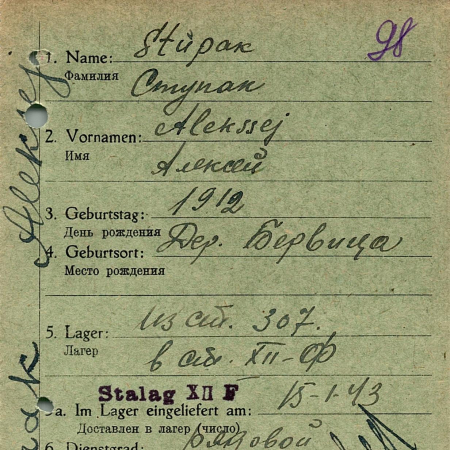 98
1. Name: Stüpak
Фамилия Ступак
2. Vornamen: Alekssej
Имя Алексей
3. Geburtstag: 1912
День рождения
4. Geburtsort: Дер. Бервица
Место рождения
5. Lager: из ст. 307.
Лагер в ст. XII-Ф
Stalag XII F 15-1-43
5a. Im Lager eingeliefert am:
Доставлен в лагер (число)
6. Dienstgrad: рядовой
Aleksej